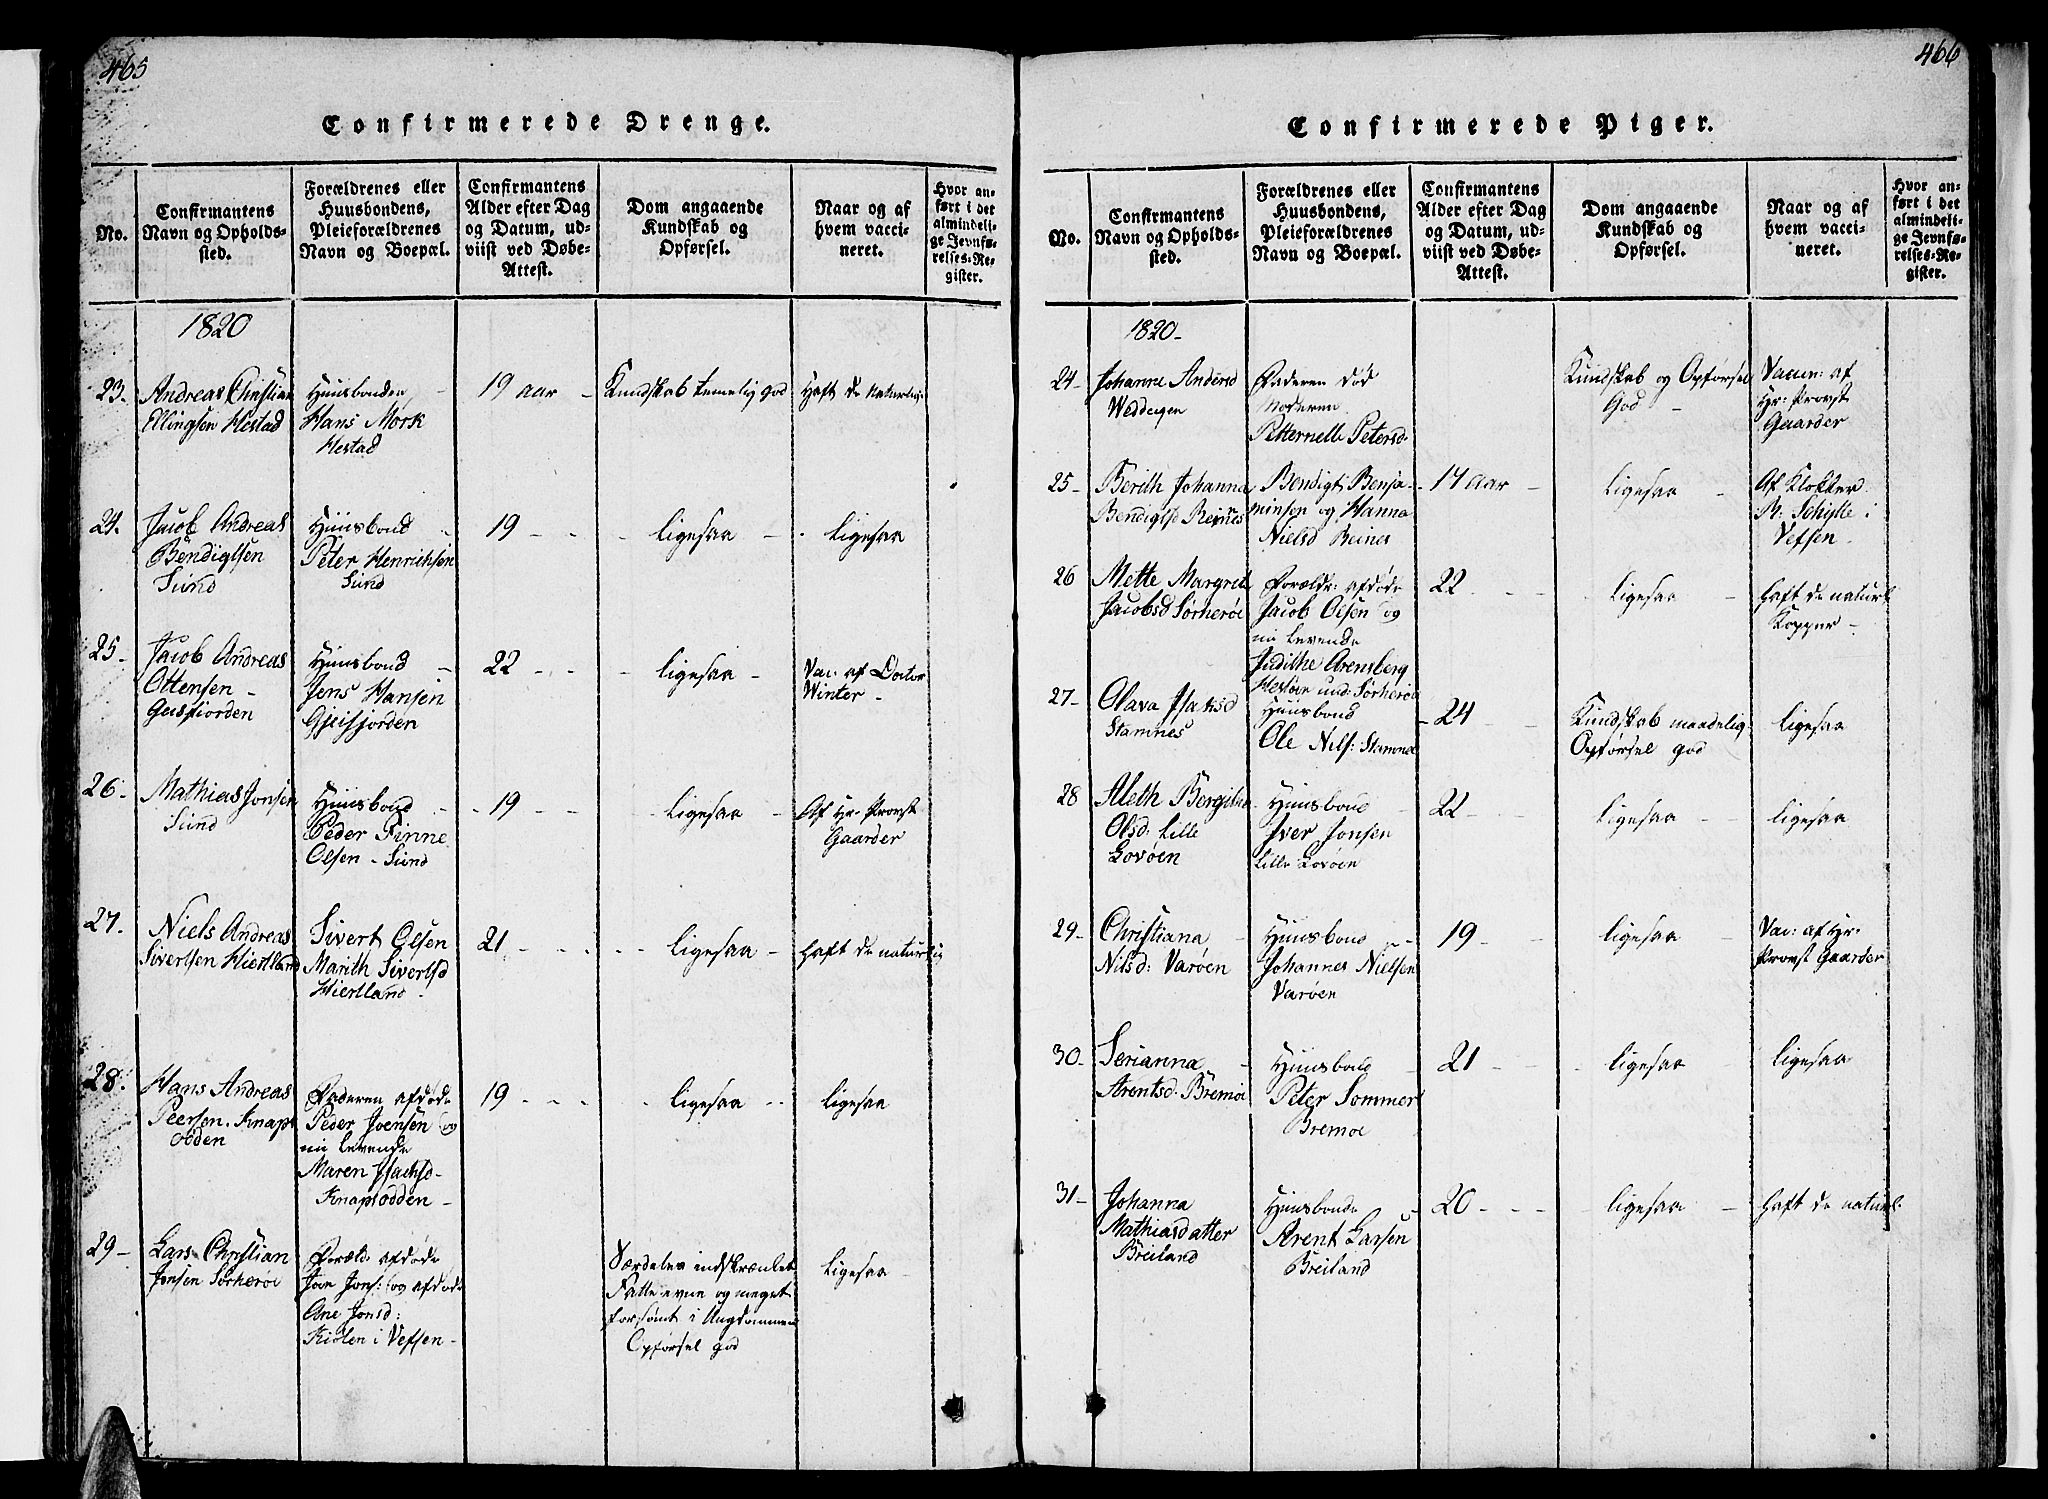 465
Confirmerede Drenge.
No.
Confirmantens
Navn og Opholds-
sted.
Forældrenes eller
Huusbondens,
Pleieforældrenes
Navn og Boepæl.
Confirmantens
Alder efter Dag
og Datum, ud-
viist ved Døbe-
Attest.
Dom angaaende
Kundskab og
Opførsel.
Naar og af
hvem vacci-
neret.
Hvor an-
ført i det
almindeli-
ge Jevnfø-
relses-Re-
gister.
1820
23.
Andreas Christian
Ellingsen Hestad
Huusbonden
Hans Mork
Hestad
19 aar
Kundskab temelig god
Haft de Naturlige
24.
Jacob Andreas
Bendigtsen
Sund
Huusbond
Peter Henrichsen
Sund
19
ligesaa
ligesaa
25
Jacob Andreas
Ottensen
Geisfiorden
Huusbond
Jens Hansen
Gjeisfjorden
22
ligesaa
Vac: af Doctor
Winter
26
Mathias Jonsen
Sund
Huusbond
Peder Finne
Olsen - Sund
19
ligesaa
Af Hr. Provst
Gaarder
27.
Niels Andreas
Sivertsen Hiertland
Sivert Olsen
Marith Sivertsd
Hiertland
21
ligesaa
Haft de naturlig
28.
Hans Andreas
Peersen. Knapt
odden
Faderen afdøde
Peder Joensen og
nu levende
Maren Isachsd
Knaptodden
19
ligesaa
ligesaa
29
Lars Christian
Jonsen Sørherøe
Foræld: afdøde
Jon Jons: og afdøde
Ane Jonsd:
Kiolen i Vefsen
Særdeles indskrænket
Fatteevne og meget
forsømt i Ungdommen
Opførsel god
ligesaa
466
Confirmerede Piger.
No.
Confirmantens
Navn og Opholds-
sted.
Forældrenes eller
Huusbondens,
Pleieforældrenes
Navn og Boepæl.
Confirmantens
Alder efter Dag
og Datum, ud-
viist ved Døbe-
Attest.
Dom angaaende
Kundskab og
Opførsel.
Naar og af
hvem vacci-
neret.
Hvor an-
ført i det
almindeli-
ge Jevnfø-
relses-Re-
gister.
1820
24
Johanne Andersd
Faderen død
Moderen
Petternelle Petersd
Kundskab og Opførsel
God
Vaccin: af
Hr: Provst
Gaarder
25
Berith Johanna
Bendigtsd Reines
Bendigt Benja-
minsen og Hanna
Nielsd Reines
17 aar
ligesaa
Af Klokker
Schytte i
Vefsen
26
Mette Margret
Jacobsd Sørherøe
Forældr: afdøde
Jacob Olsen og
nu levende
Judithe Arensberg
Sørherøe
22
ligesaa
Haft de naturl
Kopper
27
Olava Isaksd
Stamnes
Huusbond
Ole Nils: Stamnes
24
Kundskab maadelig
Opførsel god
ligesaa
28
Aleth Bergitha
Olsd: Lille
Lovøen
Huusbond
Iver Jonsen
Lille Lovøen
22
ligesaa
ligesaa
29
Christiana
Nilsd: Varøen
Huusbond
Johannes Nielsen
Varøen
19
ligesaa
Vac: af Hr:
Provst Gaarder
30
Serianna
Arentsd. Bremoe
Huusbond
Peter Sommer
Bremoe
21
ligesaa
ligesaa
31
Johanna
Mathiasdatter
Breiland
Huusbonde
Arent Larsen
Breiland
20
ligesaa
Haft de naturl: